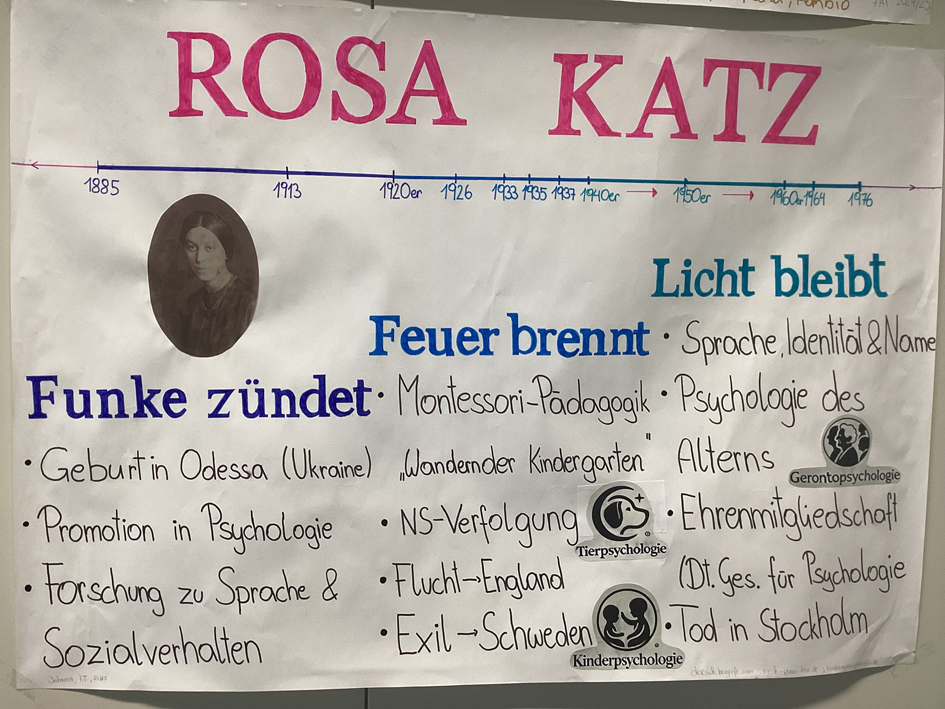 ROSA KATZ
1885 1913 1920er 1926 1933 1935 1937 1940er 1950er 1960er 1964 1976
Funke zündet
• Geburt in Odessa (Ukraine)
• Promotion in Psychologie
• Forschung zu Sprache &
Sozialverhalten
Feuer brennt
• Montessori-Pädagogik
„Wandernder Kindergarten"
• NS-Verfolgung
Tierpsychologie
• Flucht→England
• Exil→Schweden
Kinderpsychologie
Licht bleibt
• Sprache, Identität & Name
• Psychologie des
Alterns
Gerontopsychologie
• Ehrenmitgliedschaft
(Dt. Ges. für Psychologie
• Tod in Stockholm